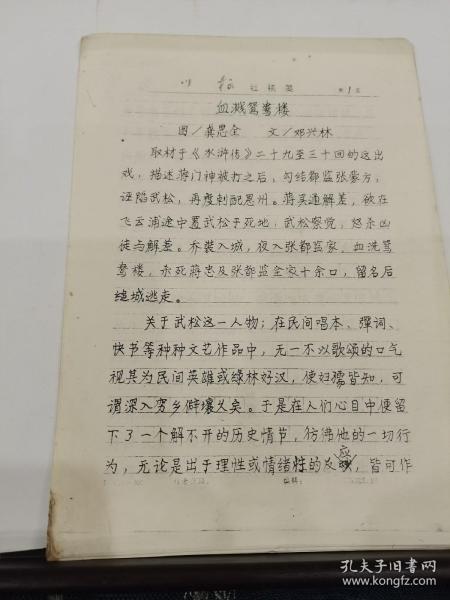 川报社稿笺 第1页
血溅鸳鸯楼
图/龚思全 文/邓兴林
取材于《水浒传》二十九至三十回的这出
戏,描述蒋门神被打之后,勾结都监张蒙方,
诬陷武松,再度刺配恩州。蒋买通解差,欲在
飞云浦途中置武松于死地;武松察觉,怒杀凶
徒与解差。乔装入城,夜入张都监家,血洗鸳
鸯楼,杀死蒋忠及张都监全家十余口,留名后
缒城逃走。
关于武松这一人物;在民间唱本、弹词、
快书等种种文艺作品中,无一不以歌颂的口气
视其为民间英雄或绿林好汉,使妇孺皆知,可
谓深入穷乡僻壤久矣。于是在人们心目中便留
下了一个解不开的历史情节,彷彿他的一切行
为,无论是出于理性或情绪性的反应,皆可作
孔夫子旧书网
www.kongfz.com